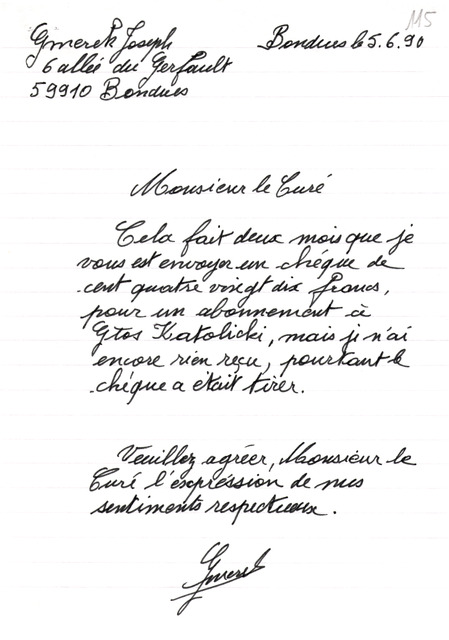 115
Gmerek Joseph
Bondues le 5.6.90
6 allée du Gerfault
59910 Bondues
Monsieur le Curé
Cela fait deux mois que je
vous est envoyer un chéque de
cent quatre vingt dix francs,
pour un abonnement à
Głos Katolicki, mais je n'ai
encore rien reçu, pourtant le
chéque a était tirer.
Veuillez agréer, Monsieur le
Curé l'expression de mes
sentiments respectueux.
Gmerek